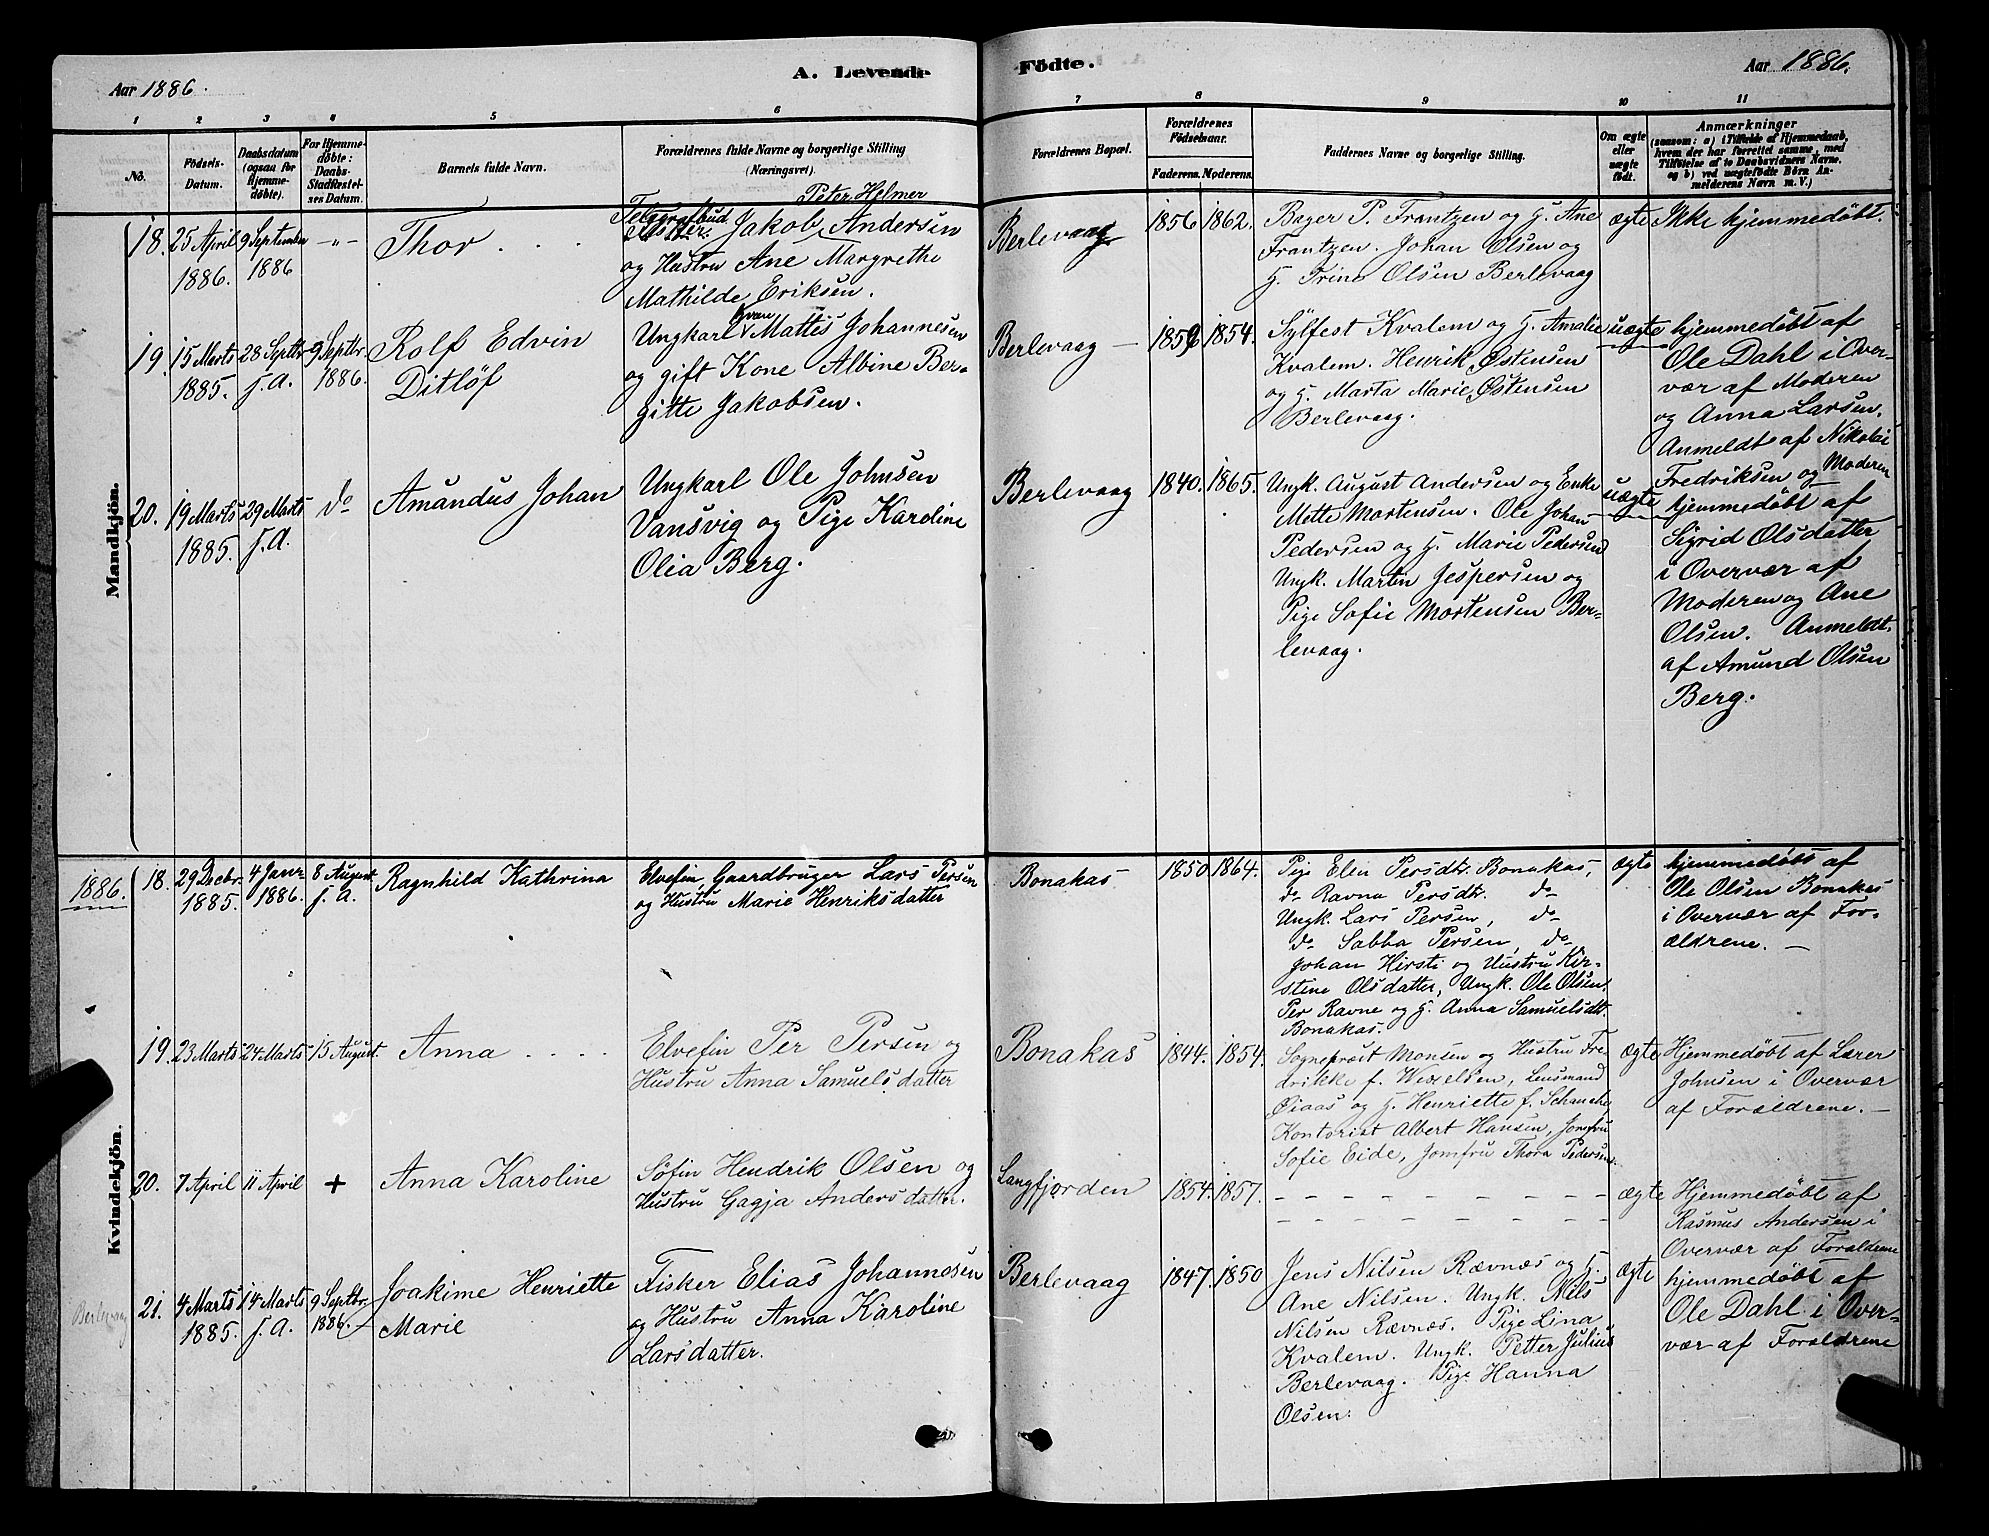 Aar 1886.
A. Levende
Födte.
Aar 1886.
1 2 3 4 5 6 7 8 9 10 11
No.
Födsels-
Datum.
Daabsdatum
(ogsaa for
Hjemme-
döbte).
For Hjemme-
döbte:
Daabs-
Stadfæstel-
ses Datum.
Barnets fulde Navn.
Forældrenes fulde Navne og borgerlige Stilling
(Næringsvei).
Forældrenes Bopæl.
Forældrenes
Födselsaar.
Faderens. Moderens.
Faddernes Navne og borgerlige Stilling.
Om ægte
eller
uægte
födt.
Anmærkninger
(saasom: a) i Tilfælde af Hjemmedaab,
hvem der har forrettet samme, med
Tilföielse af to Daabsvidners Navne,
og b) ved uægtefödte Börn An-
melderens Navn m. V.)
Mandkjön.
18.
25 April
1886.
9 September
1886
-"-
Thor . . .
Peter Helmer
Telegrafbud
Jakob Andersen
og Hustru Ane Margrethe
Mathilde Eriksen.
Berlevaag
1856
1862.
Bager P. Frantzen og H. Ane
Frantzen. Johan Olsen og
H. Trine Olsen Berlevaag
ægte
Ikke hjemmedøbt.
19.
15 Marts
1885.
28 Septbr
f. A.
9 Septbr.
1886.
Rolf Edvin
Ditløf
Ungkarl Mattis Johannesen
og gift Kone Albine Ber-
gitte Jakobsen.
Berlevaag —
1854.
Sylfest Kvalem og H. Amalie
Kvalem. Henrik Østensen
og H. Marta Marie Østensen
Berlevaag.
uægte
hjemmedøbt af
Ole Dahl i Over-
vær af Moderen
og Anna Larsen.
Anmeldt af Nikolai
Fredriksen og Moderen
20.
19 Marts
1885.
29 Marts
f. A.
do
Amandus Johan
Ungkarl Ole Johnsen
Vansvig og Pige Karoline
Olia Berg.
Berlevaag
1840.
1865.
Ungk. August Andersen og Enke
Mette Mortensen. Ole Johan
Pedersen og H. Marie Pedersen
Ungk. Martin Jespersen og
Pige Sofie Mortensen Ber-
levaag.
uægte
hjemmedøbt af
Sigrid Olsdatter
i Overvær af
Moderen og Ane
Olsen. Anmeldt
af Amund Olsen
Berg.
Kvindekjön.
1886.
18.
29 Decbr.
1885.
4 Janr
1886.
8 August
f. A.
Ragnhild Kathrina
Elvefin, Gaardbruger Lars Persen
og Hustru Marie Henriksdatter
Bonakas
1850
1864.
Pige Elen Persdtr. Bonakas,
do Ravna Persdtr. do
Ungk. Lars Persen, do
do Sabba Persen, do
Johan Hirsti og Hustru Kir-
stine Olsdatter, Ungk. Ole Olsen.
Per Ravne og H. Anna Samuelsdtr.
Bonakas.
ægte
hjemmedøbt af
Ole Olsen Bonakas
i Overvær af For-
ældrene. —
19.
23 Marts
24 Marts
15 August.
Anna . . . .
Elvefin Per Persen og
Hustru Anna Samuelsdatter
Bonakas
1844.
1854.
Sogneprest Monsen og Hustru Fre-
drikke f. Wesselsen, Lensmand
Øiaas og H. Henriette f. Schanche,
Kontorist Albert Hansen, Jomfru
Sofie Eide, Jomfru Thora Pedersen.
ægte
Hjemmedøbt af Lærer
Johnsen i Overvær
af Forældrene. —
20.
7 April
11 April
+
Anna Karoline
Søfin Hendrik Olsen og
Hustru Gagja Andersdatter.
Langfjorden
1854.
1857.
- - - - - - - -
- - - - - - - -
ægte
Hjemmedøbt af
Rasmus Andersen i
Overvær af Forældrene
Berlevaag
21.
4 Marts
1885.
14 Marts
f. A.
9 Septbr.
1886.
Joakime Henriette
Marie
Fisker Elias Johannesen
og Hustru Anna Karoline
Larsdatter.
Berlevaag
1847.
1850
Jens Nilsen Rævnæs og H.
Ane Nilsen. Ungk. Nils
Nilsen Rævnæs. Pige Lina
Kvalem. Ungk. Petter Julius
Berlevaag. Pige Hanna
Olsen.
ægte
hjemmedøbt af
Ole Dahl i Over-
vær af Forældrene